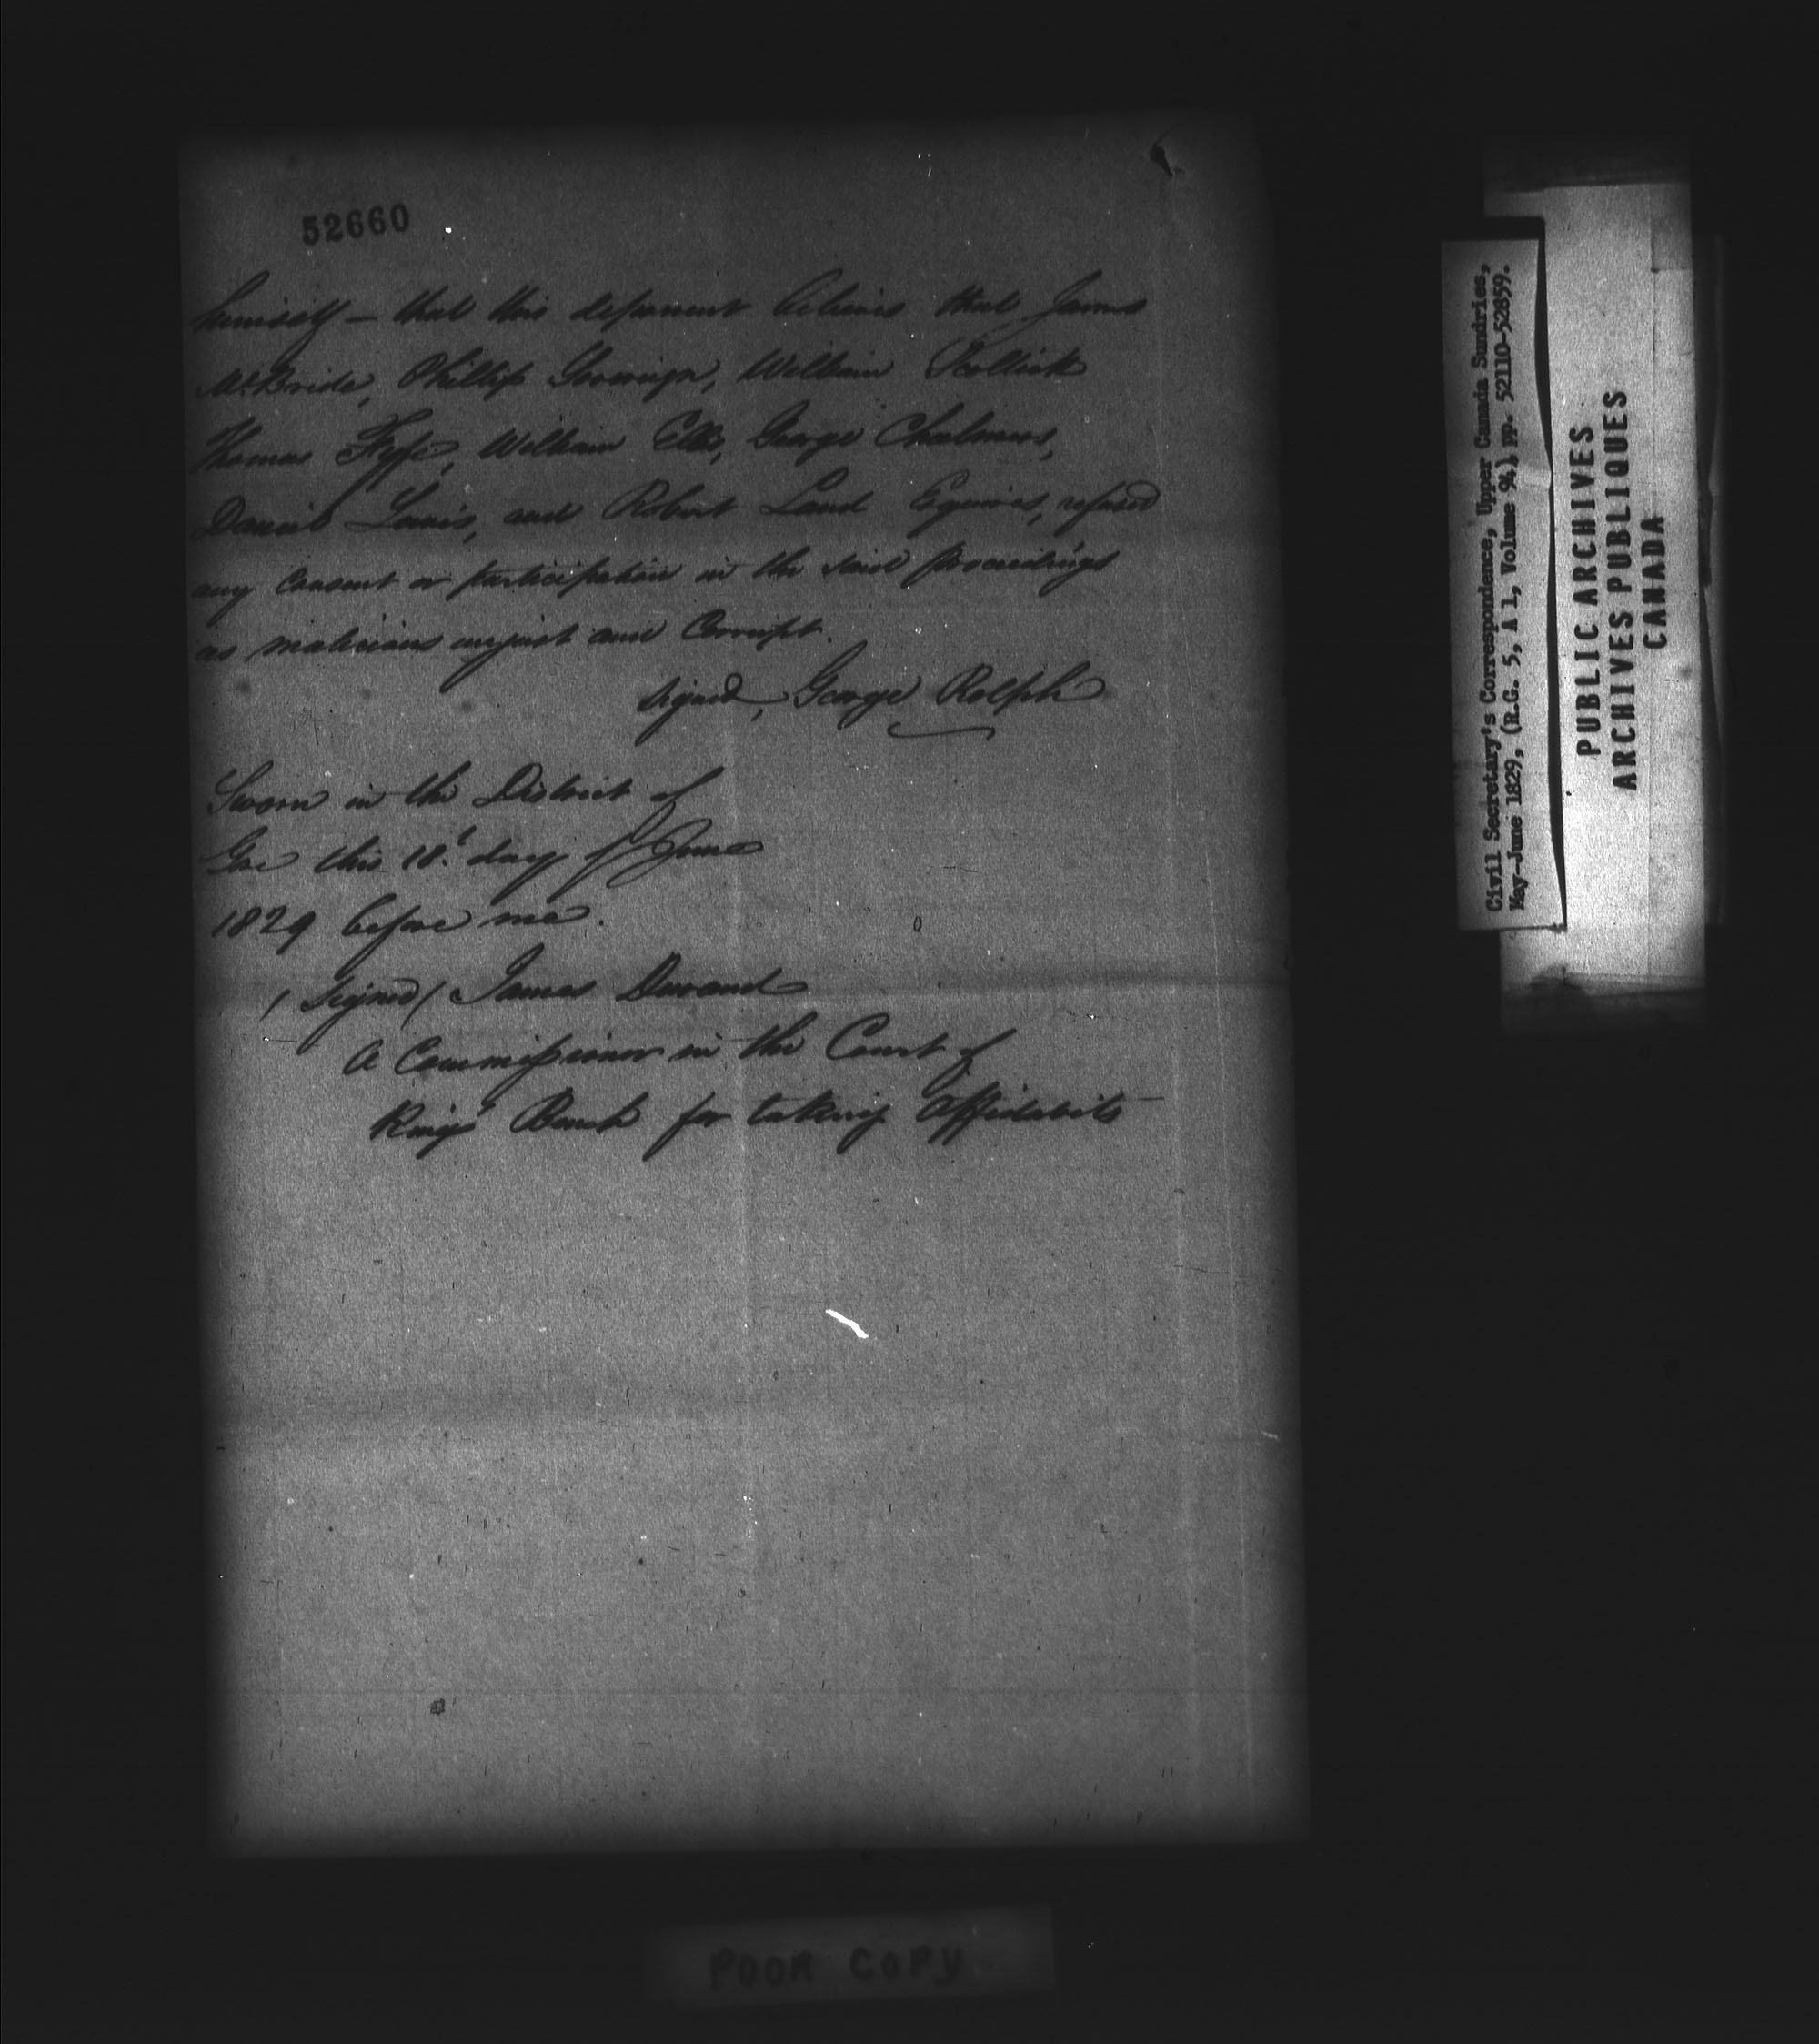 52660
himself — that this deponent believes that James
McBride, Phillip Sovereign, William Scollick
Thomas Fyfe, William Ellis, George Chalmers,
Daniel Lewis, and Robert Land Esquires, refused
any Consent or participation in the said proceedings
as malicious unjust and Corrupt.
signed, George Rolph
Sworn in the District of
Gore this 18.t day of June
1829 before me.
/ Signed / James Durand
A Commissioner in the Court of
Kings Bench for taking Affidavits —
Civil Secretary's Correspondence, Upper Canada Sundries,
May-June 1829, (R.G. 5, A 1, Volume 94), pp. 52110-52859.
PUBLIC ARCHIVES
ARCHIVES PUBLIQUES
CANADA
POOR COPY